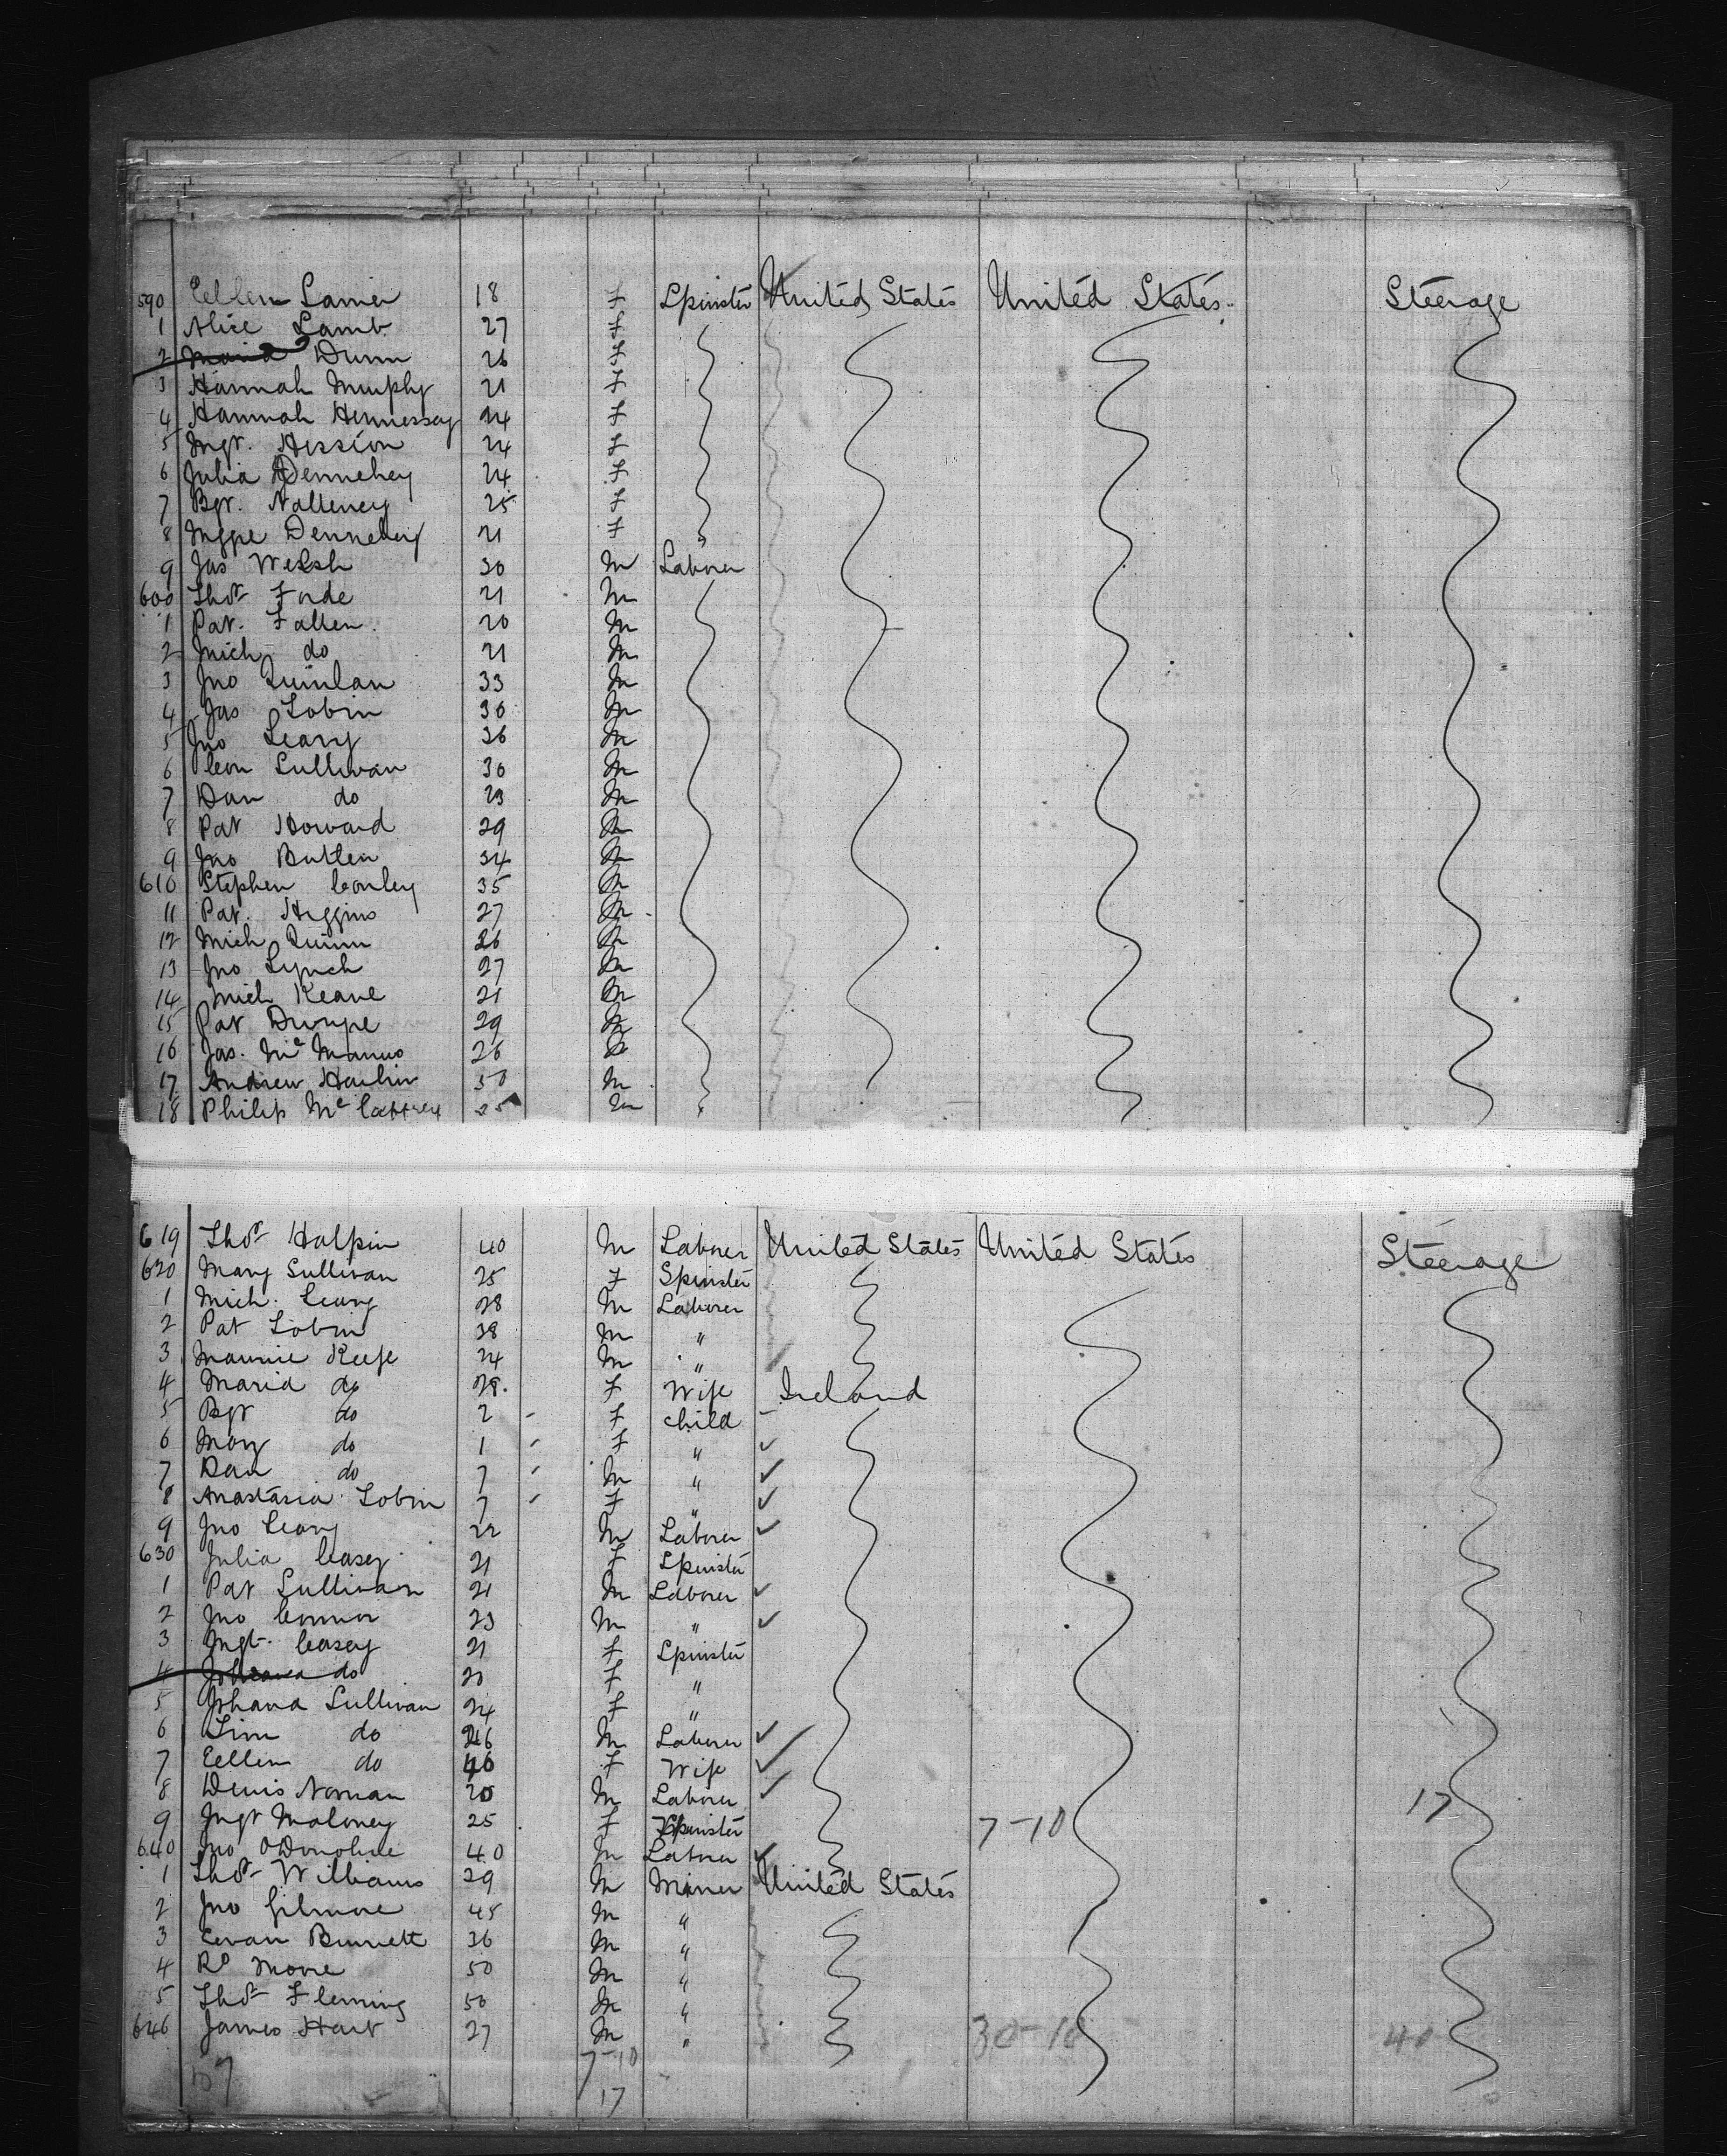 590 Eellen Lanier 18 F Spinster United States United States Steerage
1 Alice Lamb 27 F
2 Maria Dunn 26 F
3 Hannah Murphy 21 F
4 Hannah Hennessey 24 F
5 Mgt. Hession 24 F
6 Julia Dennehey 24 F
7 Bgt. Nalleney 25 F
8 Mgge Dennehey 21 F
9 Jas Welsh 30 M Laborer
600 Thos Forde 21 M
1 Pat. Fallen 20 M
2 Mich do 21 M
3 Jno Quinlan 33 M
4 Jas Tobin 30 M
5 Jno Leary 36 M
6 Con Sullivan 30 M
7 Dan do 23 M
8 Pat Howard 29 M
9 Jno Butler 34 M
610 Stephen Conley 35 M
11 Pat. Higgins 27 M
12 Mich Quinn 26 M
13 Jno Lynch 27 M
14 Mich Keane 21 M
15 Pat 29 M
16 Jas. Mc Manus 26 M
17 Andrew 50 M
18 Philip Mc Caffrey 25 M
619 Thos Halpin 40 M Laborer United States United States Steerage
620 Mary Sullivan 25 F Spinster
1 Mich. Leary 28 M Laborer
2 Pat Tobin 38 M "
3 Maurice Keefe 24 M "
4 Maria do 28. F Wife Ireland
5 Bgt do 2 F child
6 May do 1 F "
7 Dan do 7 M "
8 Anastasia Tobin 7 F "
9 Jno Leary 22 M Laborer
630 Julia Casey 21 F Spinster
1 Pat Sullivan 21 M Laborer
2 Jno Connor 23 M "
3 Mgt. Casey 21 F Spinster
4 Johanna do 20 F "
5 Johana Sullivan 24 F "
6 Tim do 46 M Laborer
7 Eellen do 40 F Wife
8 Denis Noonan 20 M Laborer 17
9 Mgt Maloney 25 F Spinster 7-10
640 Jno ODonohue 40 M Laborer
1 Thos Williams 29 M Miner United States
2 Jno Gilmore 45 M "
3 Eevan Burnett 36 M "
4 Rd Moore 50 M "
5 Thos Fleming 50 M "
646 James Hart 27 M " 30-10 40
57 7-10
17